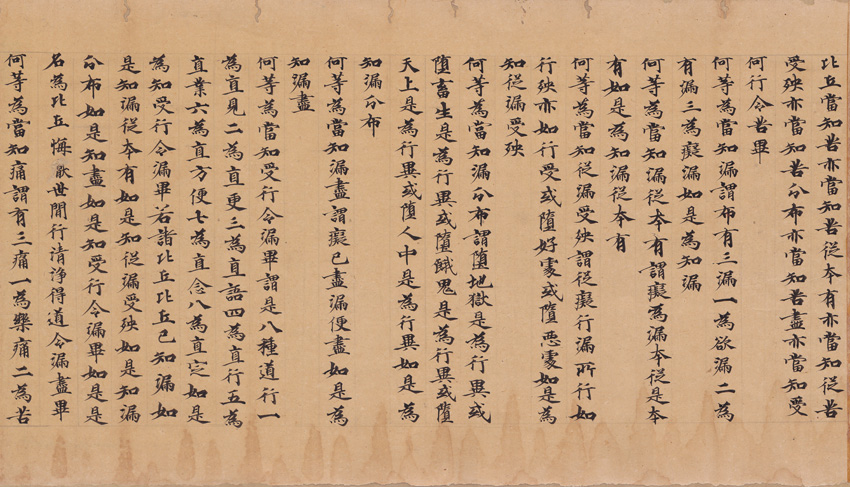 比丘當知苦亦當知苦從本有亦當知從苦
受殃亦當知苦分布亦當知苦盡亦當知受
何行令苦畢
何等為當知漏謂布有三漏一為欲漏二為
有漏三為癡漏如是為知漏
何等為當知漏從本有謂癡為漏本從是本
有如是為知漏從本有
何等為當知從漏受殃謂從癡行漏所行如
行殃亦如行受或墮好處或墮惡處如是為
知從漏受殃
何等為當知漏分布謂墮地獄是為行異或
墮畜生是為行異或墮餓鬼是為行異或墮
天上是為行異或墮人中是為行異如是為
知漏分布
何等為當知漏盡謂癡已盡漏便盡如是為
知漏盡
何等為當知受行令漏畢謂是八種道行一
為直見二為直更三為直語四為直行五為
直業六為直方便七為直念八為直定如是
為知受行令漏畢若諸比丘比丘已知漏如
是知漏從本有如是知從漏受殃如是知漏
分布如是知盡如是知受行令漏畢如是是
名為比丘悔厭世間行清淨得道令漏盡畢
何等為當知痛謂有三痛一為樂痛二為苦